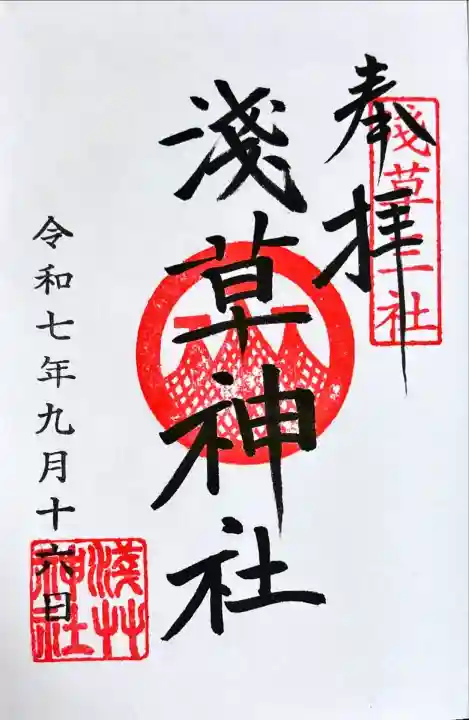 奉拝
淺草三社
淺草神社
令和七年九月十六日
淺草
神社